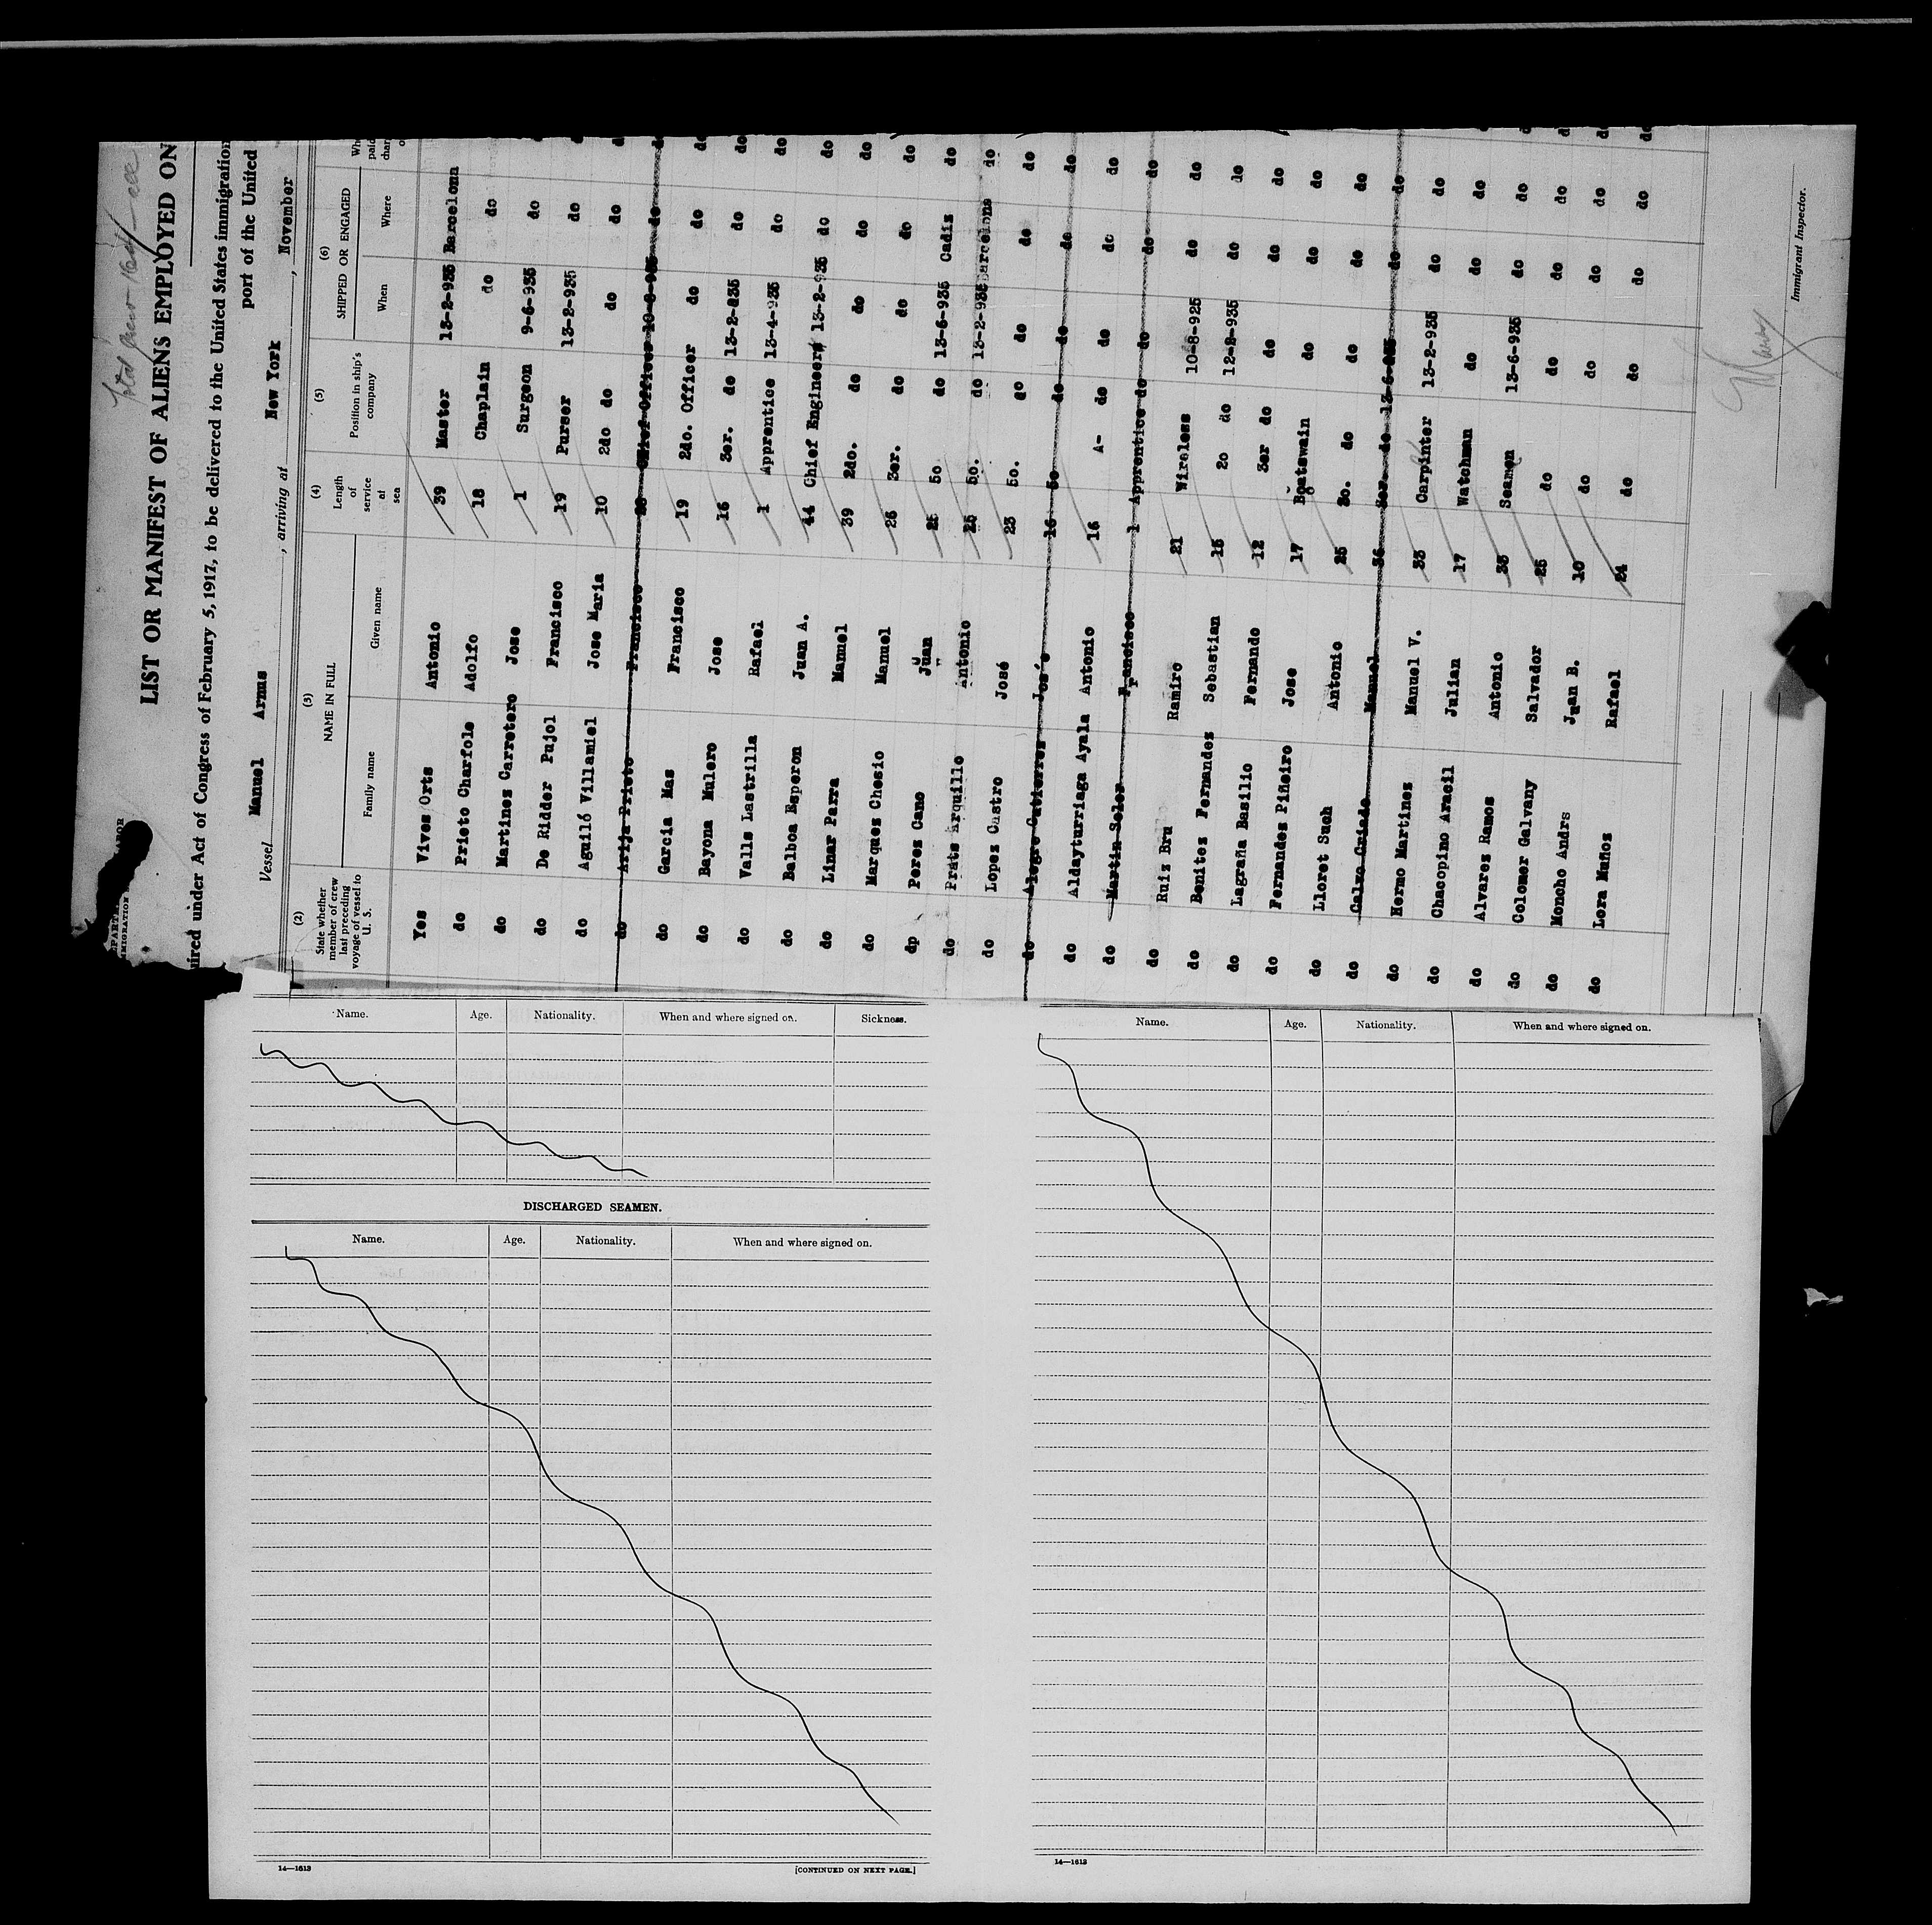 LIST OR MANIFEST OF ALIENS EMPLOYED ON
uired under Act of Congress of February 5, 1917, to be delivered to the United States immigration
port of the United
Vessel Manuel Arnus , arriving at New York , November
(2) (3) (4) (5) (6)
State whether member of crew last preceding voyage of vessel to U. S.
NAME IN FULL
Family name Given name
Length of service at sea
Position in ship's company
SHIPPED OR ENGAGED
When Where
Yes Vives Orts Antonio 39 Master 13-2-935 Barcelona
do Prieto Charifole Adolfo 18 Chaplain do do
do Martinez Carretero Jose 1 Surgeon 9-6-935 do
do De Ridder Pujol Francisco 19 Purser 13-2-935 do
do Aguiló Villamiel Jose Maria 10 2do do do do
do Arija Prieto Francisco Chief Officer 10-8-935 do do
do Garcia Mas Francisco 19 2do. Officer do do do
do Bayona Mulero Jose 16 3er. do 13-2-935 do do
do Valls Lastrilla Rafael 1 Apprentice 13-4-935 do do
do Balboa Esperon Juan A. 44 Chief Engineer 13-2-935 do do
do Linar Parra Manuel 39 2do. do do do do
do Marquez Chesio Manuel 26 3er. do do do do
dp Perez Cano Juan 25 5o do 13-6-935 Cadiz do
do Prats Arquillo Antonio 25 5o. do 13-2-935 Barcelona do
do Lopez Castro José 23 5o. do do do do
do Alegre Gutierrez José 16 5o do do do do
do Aldayturriaga Ayala Antonio 16 A- do do do do
do Martin Soler Francisco 1 Apprentice do do do do
do Ruiz Bru Ramiro 21 Wireless 10-8-925 do do
do Benitez Fernandez Sebastian 15 2o do 12-2-935 do do
do Lagraña Basilio Fernando 12 3er do do do do
do Fernandez Piñeiro Jose 17 Boatswain do do do
do Lloret Such Antonio 25 2o. do do do do
do Calvo Criado Manuel 36 3er. do 13-6-935 do do
do Hermo Martinez Manuel V. 33 Carpinter 13-2-935 do do
do Chacopino Aracil Julian 17 Watchman do do do
do Alvarez Ramos Antonio 35 Seamen 13-6-935 do do
do Colomer Galvany Salvador 25 do do do do
do Moncho Andrs Juan B. 10 do do do do
do Lora Muñoz Rafael 24 do do do do
Immigrant Inspector.
Name. Age. Nationality. When and where signed on. Sickness.
DISCHARGED SEAMEN.
Name. Age. Nationality. When and where signed on.
14—1613 [CONTINUED ON NEXT PAGE.]
Name. Age. Nationality. When and where signed on.
14—1613